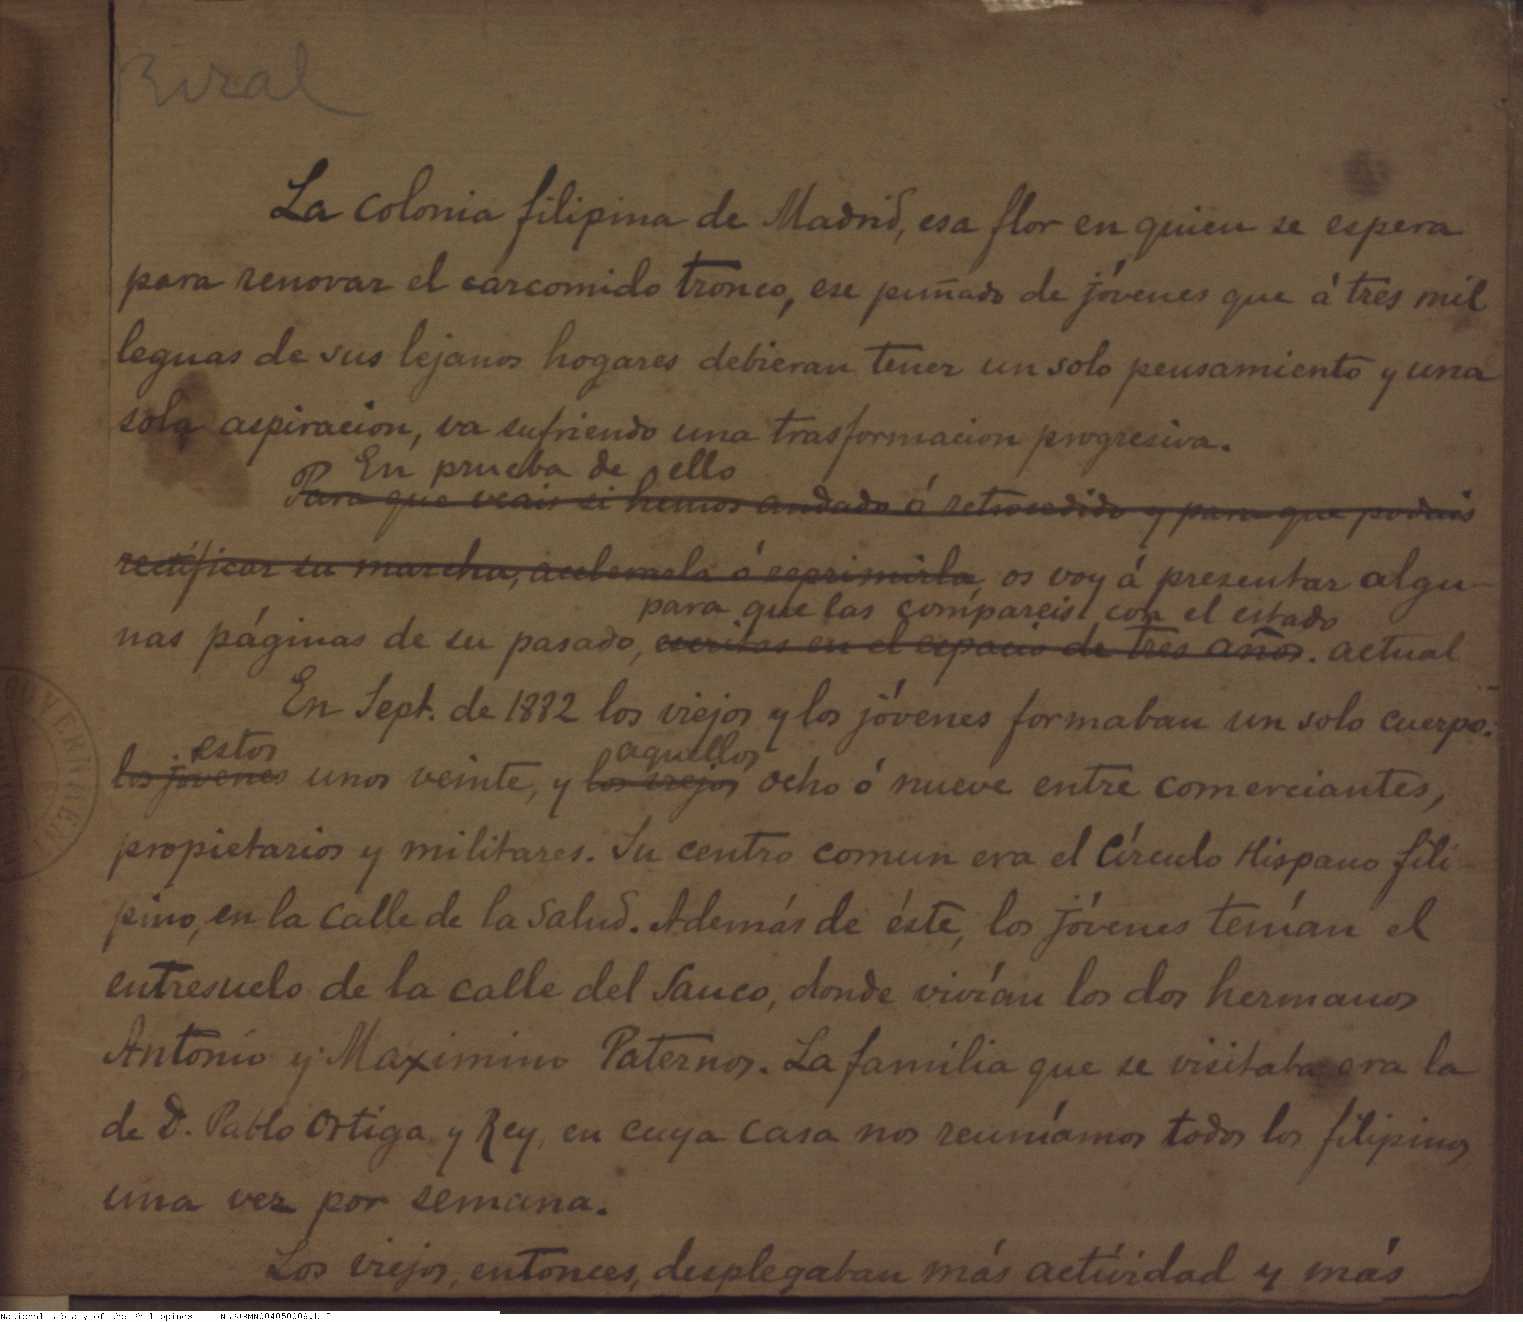 Rizal
La colonia filipina de Madrid, esa flor en quien se espera
para renovar el carcomido tronco, ese puñado de jóvenes que á tres mil
leguas de sus lejanos hogares debieran tener un solo pensamiento y una
sola aspiracion, va sufriendo una trasformacion progresiva.
En prueba de ello
Para que veais si hemos andado ó retrocedido y para que podais
rectificar su marcha, ó reprimirla, os voy á presentar algu-
para que las compareis con el estado
nas páginas de su pasado, escritas en el espacio de tres años. actual
En Sept. de 1882 los viejos y los jóvenes formaban un solo cuerpo:
estos aquellos
los jovenes unos veinte, y los viejos ocho ó nueve entre comerciantes,
propietarios y militares. Su centro comun era el Círculo Hispano fili-
pino, en la calle de la Salud. Además de éste, los jóvenes tenían el
entresuelo de la calle del Sauco, donde vivían los dos hermanos
Antonio y Maximino Paternos. La familia que se visitaba era la
de D. Pablo Ortiga y Rey, en cuya casa nos reuníamos todos los filipinos
una vez por semana.
Los viejos, entonces, desplegaban más actividad y más
National Library of the Philippines